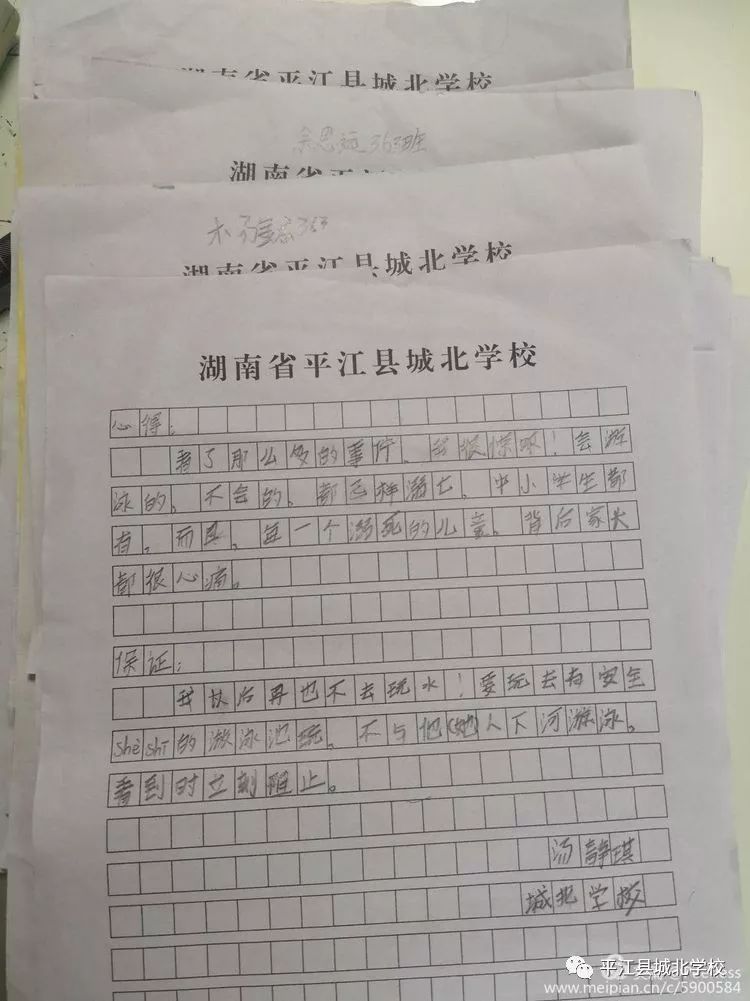 湖南省平江县城北学校
363班
湖南省平
363
湖南省平江县城北学校
湖南省平江县城北学校
心得:
看了那么多的事件、我很惊呀!会游
泳的。不会的。都已样溺亡。中小学生都
有,而且,每一个溺死的儿童。背后家长
都很心痛。
保证:
我从后再也不去玩水!要玩去有安全
shè shī的游泳池玩、不与他(她)人下河游泳。
看到时立刻阻止。
汤静琪
城北学校
平江县城北学校
www.meipian.cn/c/5900584